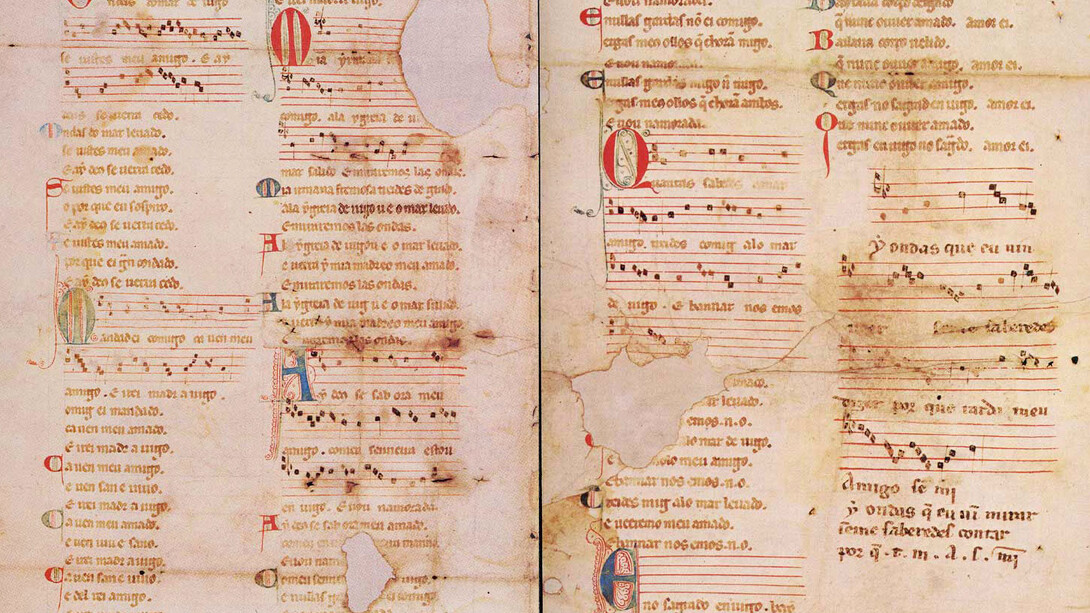 se uistes meu amigo. E ay
deus se uerra cedo.
Ondas do mar leuado.
se uistes meu amado.
E ay deo se uerra cedo.
Se uistes meu amigo.
o por que eu sospiro.
E ay deo se uerra cedo.
Se uistes meu amado.
por que ei gñ coidado.
E ay deo se uerra cedo.
Mandadei comigo ca uen meu
amigo. E irei madr a uigo.
omig ei mandado.
ca uen meu amado.
E irei madr a uigo.
Ca uen meu amigo.
e uen san e uiuo.
E irei madr a uigo.
Ca uen meu amado.
e uen uiu e sano.
E irei madr a uigo.
Ca uen san e uiuo.
e del rei amigo.
Mia yrmana
comigo. ala ygreia de ui
mar salido E miraremos las ondas.
Mia irmana fremosa treides de grado.
ala ygreia de uigo u e o mar leuado.
E miraremos las ondas.
Ala ygreia de uigo u e o mar leuado.
e uerra y mia madreo meu amado.
E miraremos las ondas.
Ala ygreia de uig u e o mar salido.
e uerra y mia madreo meu amigo.
E miraremos las ondas.
Ay deo se sab ora meu
amigo. comeu senneira estou
en uigo. E uou namorada.
Ay deo se sab ora meu amado.
E nullas gardas nõ ei comigo.
ergas meo ollos q̃ chorã migo.
E uou namorada.
E nullas gardas migo
ergas meo ollos q̃ chorã ambos.
E uou namorada.
Quantas sabedes amar
amigo. treides comig alo mar
de uigo. E bannar nos emos
leuado.
emos.n.o.
alo mar de uigo.
meu amigo.
E bannar nos emos.n.o.
Treides mig alo mar leuado.
e ueeremo meu amado.
E bannar nos emos.n.o.
Eno sagrado en uigo. bay
q̃ nunc ouuer amado. amor ei.
Bailaua corpo uelido.
q̃ nunc ouuer amado. amor ei.
Que nunc ouuer amigo.
ergas no sagrad en uigo. amor ei.
Que nunc ouuer amado.
ergas en uigo no sagrado. amor ei.
Ay ondas que eu uin
ueer se me saberedes
dizer por que tarda meu
Amigo se mi
y ondas q̃ eu uin mirar
se me saberedes contar
por q̃ . t . m . A . s . mi